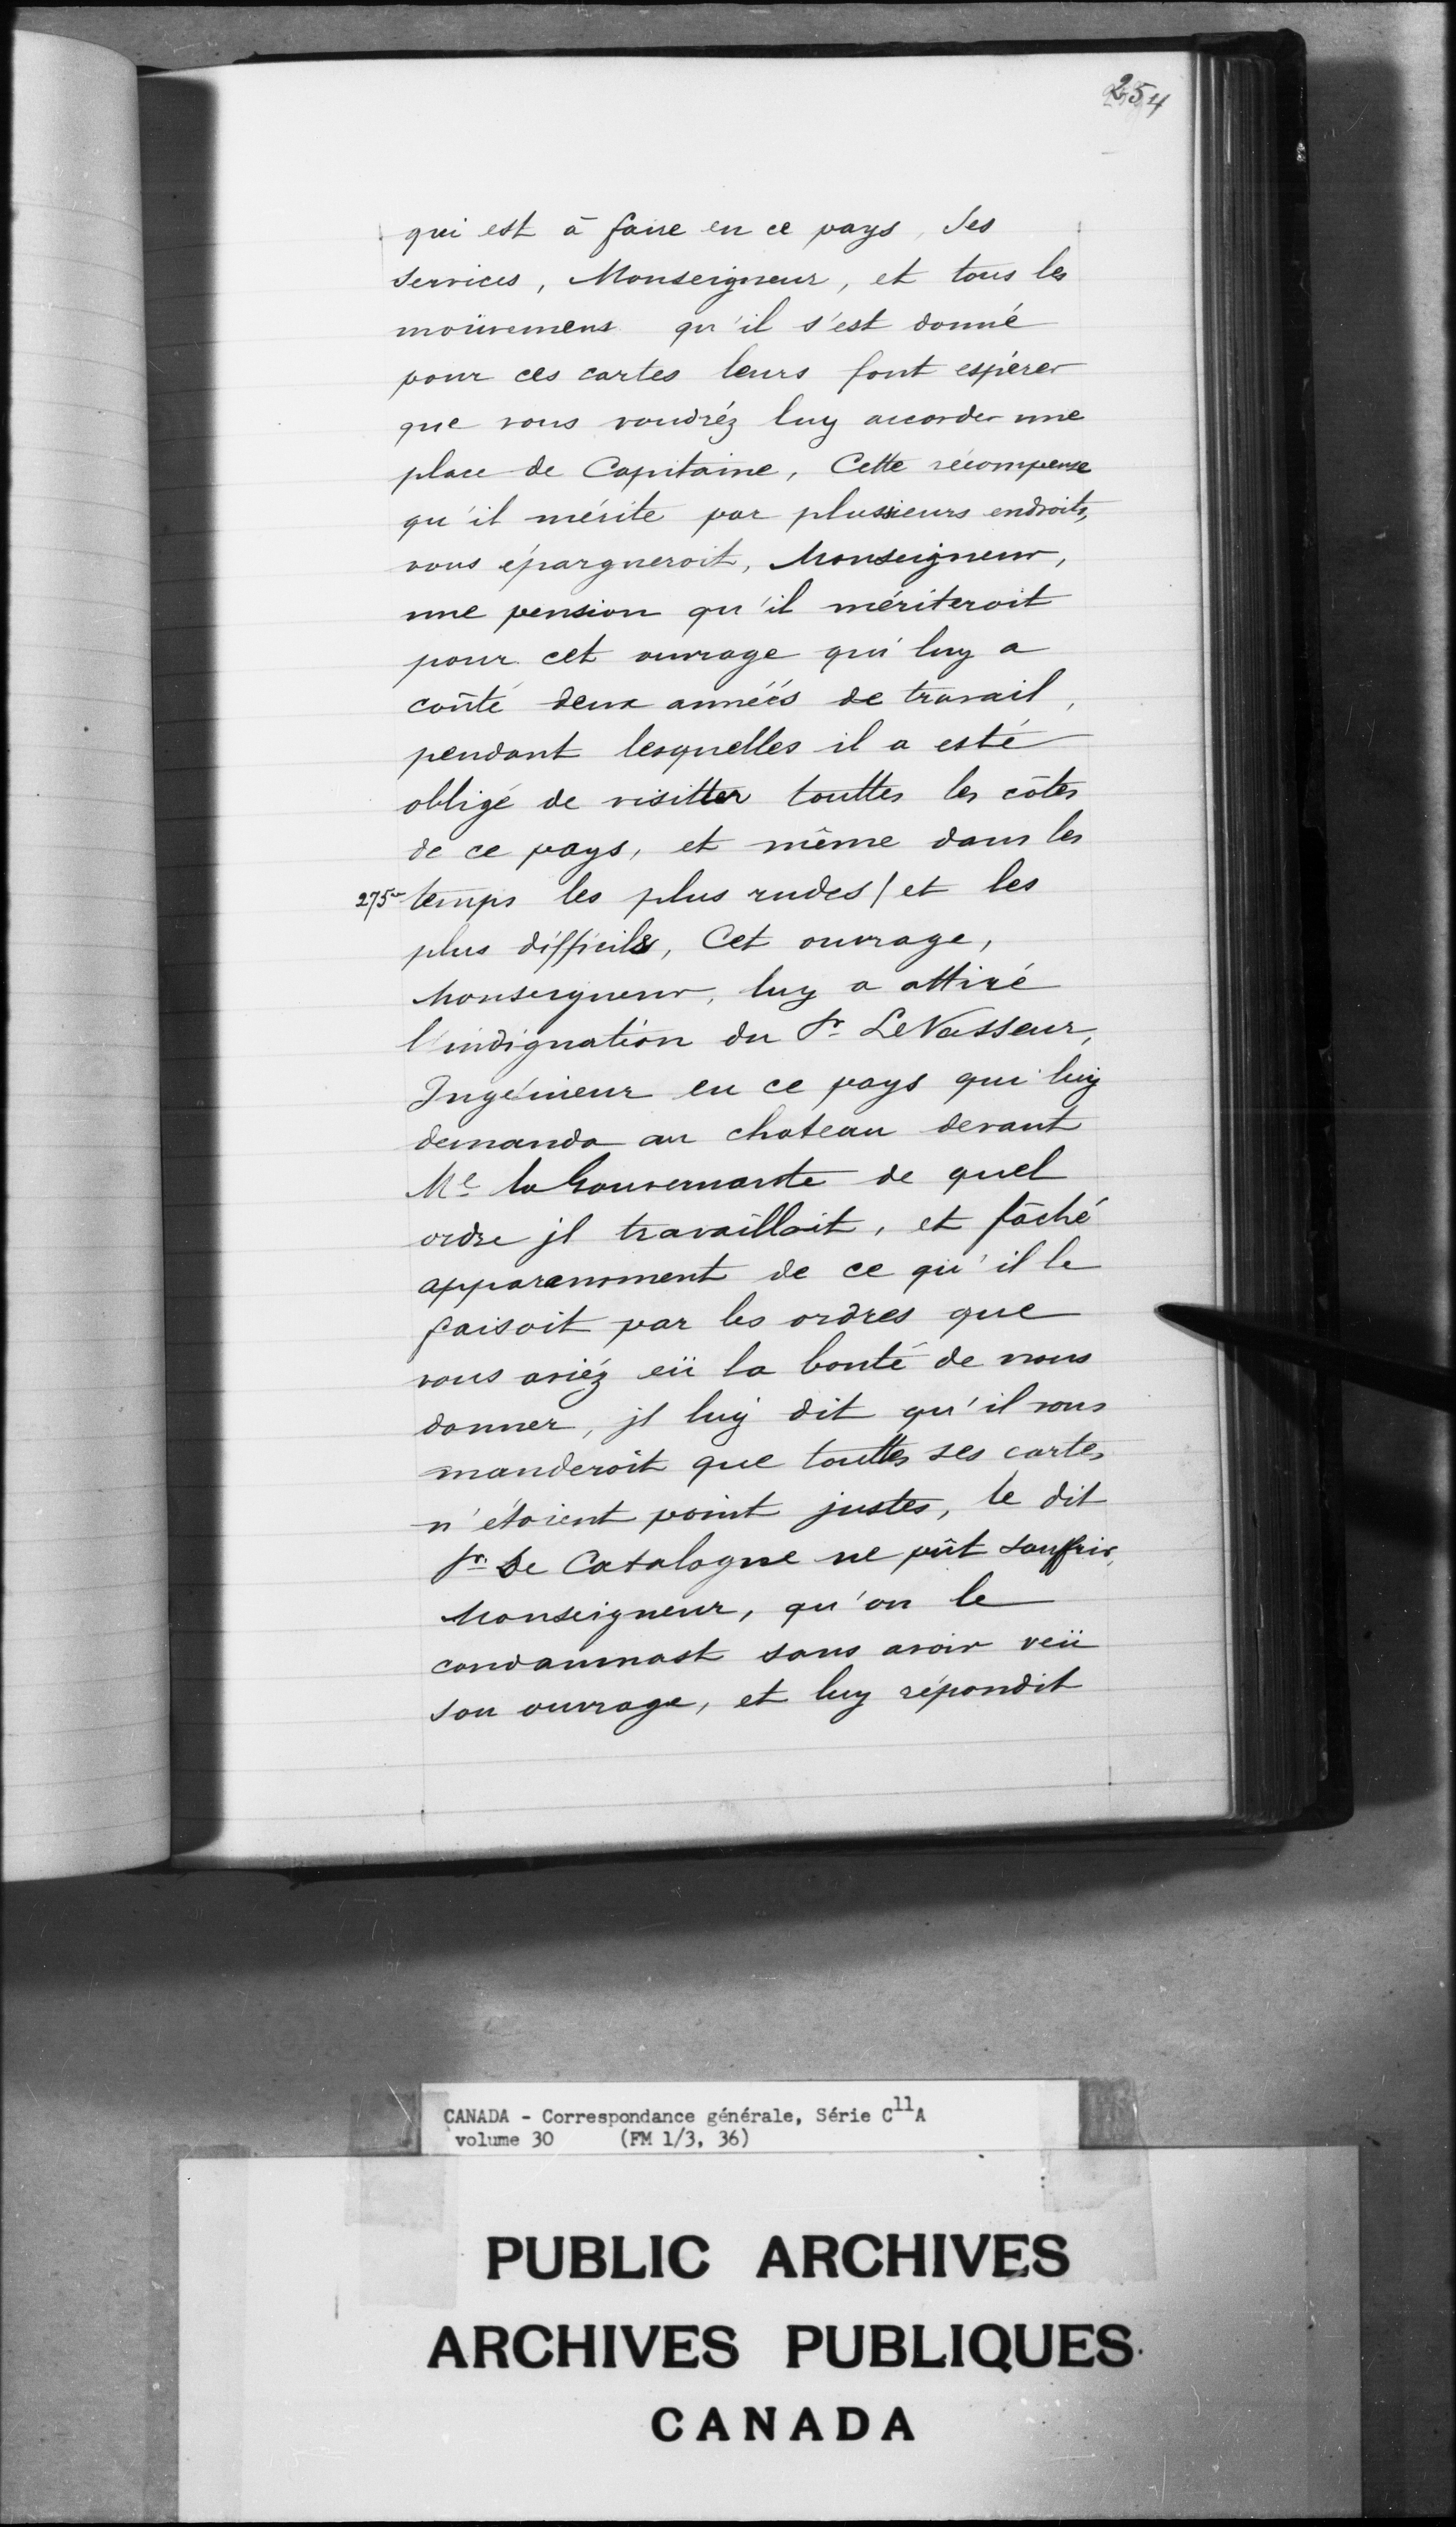 254
qui est à faire en ce pays, Ses
Services, Monseigneur, et tous les
moüvemens qu'il s'est donné
pour ces cartes leurs font espérer
que vous voudréz luy accorder une
place de Capitaine, Cette récompense
qu'il mérite par plussieurs endroits,
vous épargneroit, Monseigneur,
une pension qu'il mériteroit
pour cet ouvrage qui luy a
coûté deux annéés de travail,
pendant lesquelles il a esté
obligé de visitter touttes les côtes
de ce pays, et même dans les
275 temps les plus rudes / et les
plus difficiles, Cet ouvrage,
Monseigneur, luy a attiré
l'indignation du Sr. LeVasseur,
Ingénieur en ce pays qui luy
demanda au chateau devant
Me. la Gouvernante de quel
ordre jl travailloit, et fâché
apparamment de ce qu'il le
faisoit par les ordres que
vous aviéz eü la bonté de nous
donner, jl luy dit qu'il vous
manderoit que touttes ses cartes
n'étoient point justes, le dit
Sr. De Catalogne ne pût souffrir,
Monseigneur, qu'on le
condamnast sans avoir veü
son ouvrage, et luy répondit
CANADA - Correspondance générale, Série C11A
volume 30 (FM 1/3, 36)
PUBLIC ARCHIVES
ARCHIVES PUBLIQUES
CANADA